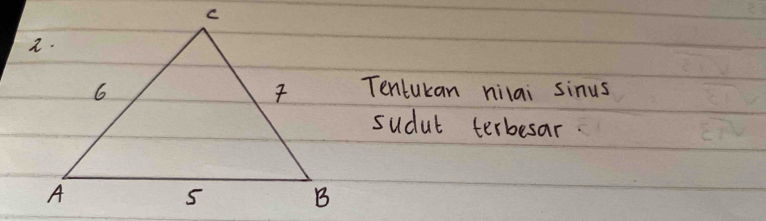 2.
C
6
7
Tentukan nilai sinus
sudut terbesar.
A
5
B